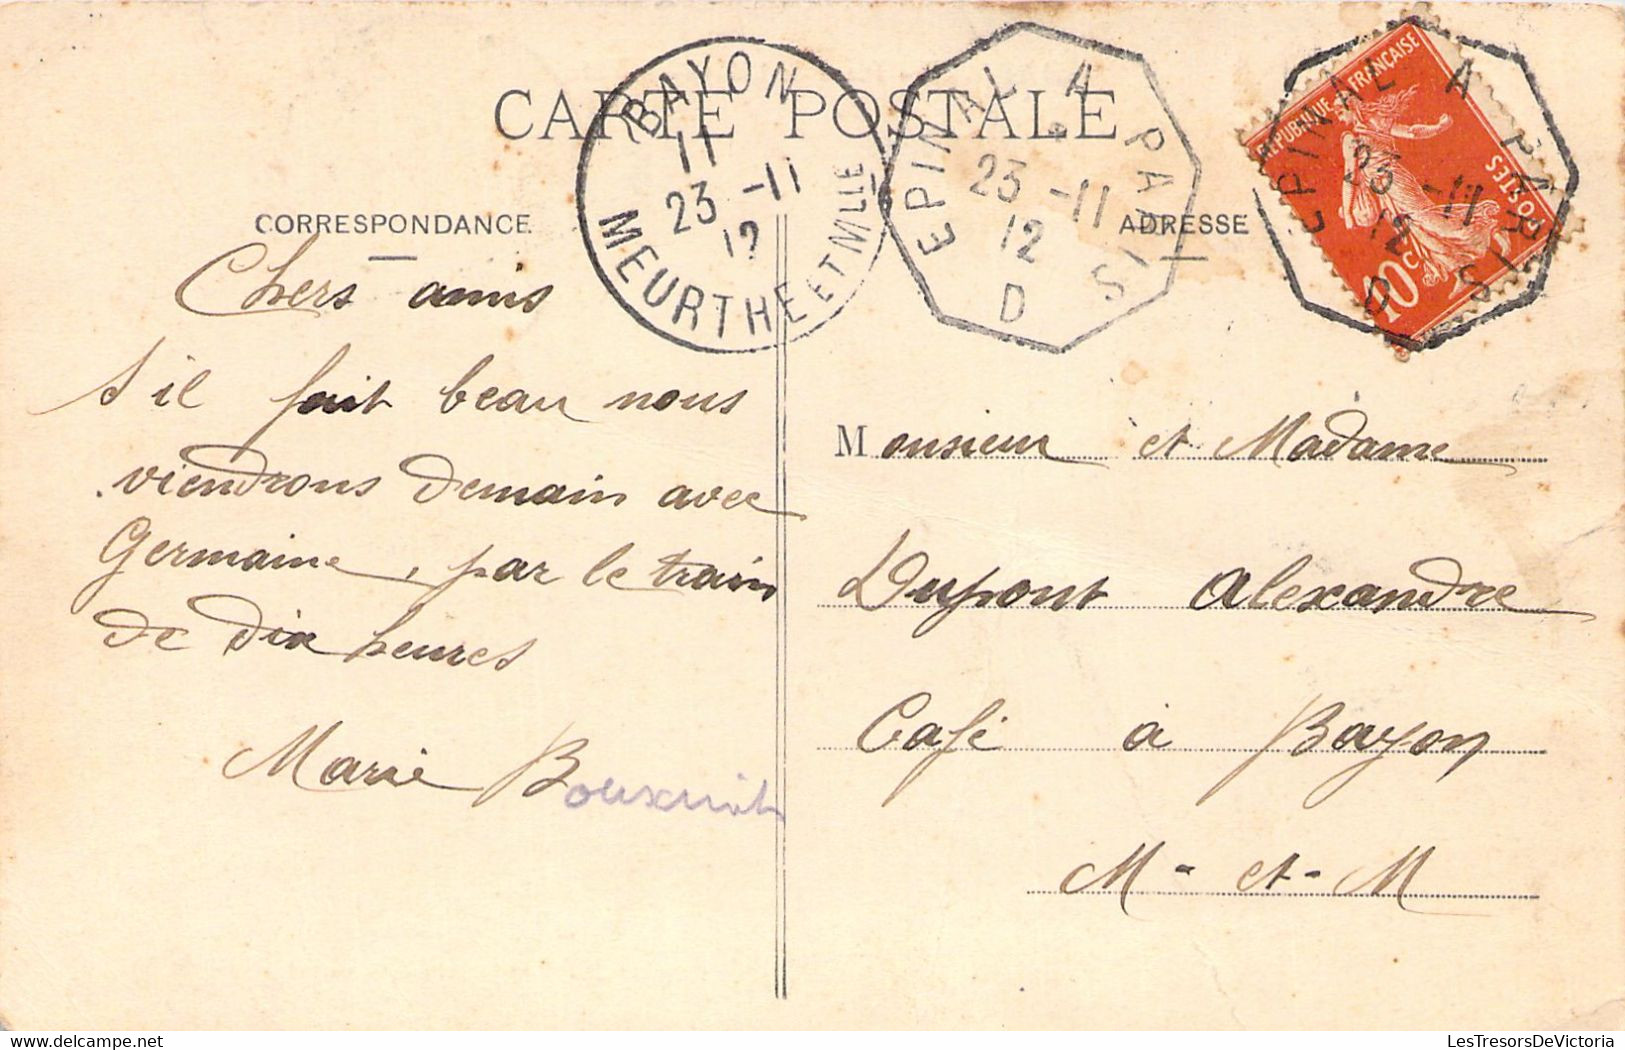 CARTE POSTALE
CORRESPONDANCE
ADRESSE
BAYON
11
23 -11
12
MEURTHE ET MLLE
EPINAL A PARIS
23 -11
12
D
REPUBLIQUE FRANÇAISE
POSTES
10c
EPINAL A PARIS
23 -11
12
D
Chers amis
S'il fait beau nous
viendrons demain avec
Germaine, par le train
de dix heures
Marie
Monsieur et Madame
Dupont Alexandre
Café à Bayon
M-et-M
LesTresorsDeVictoria
LesTresorsDeVictoria.com